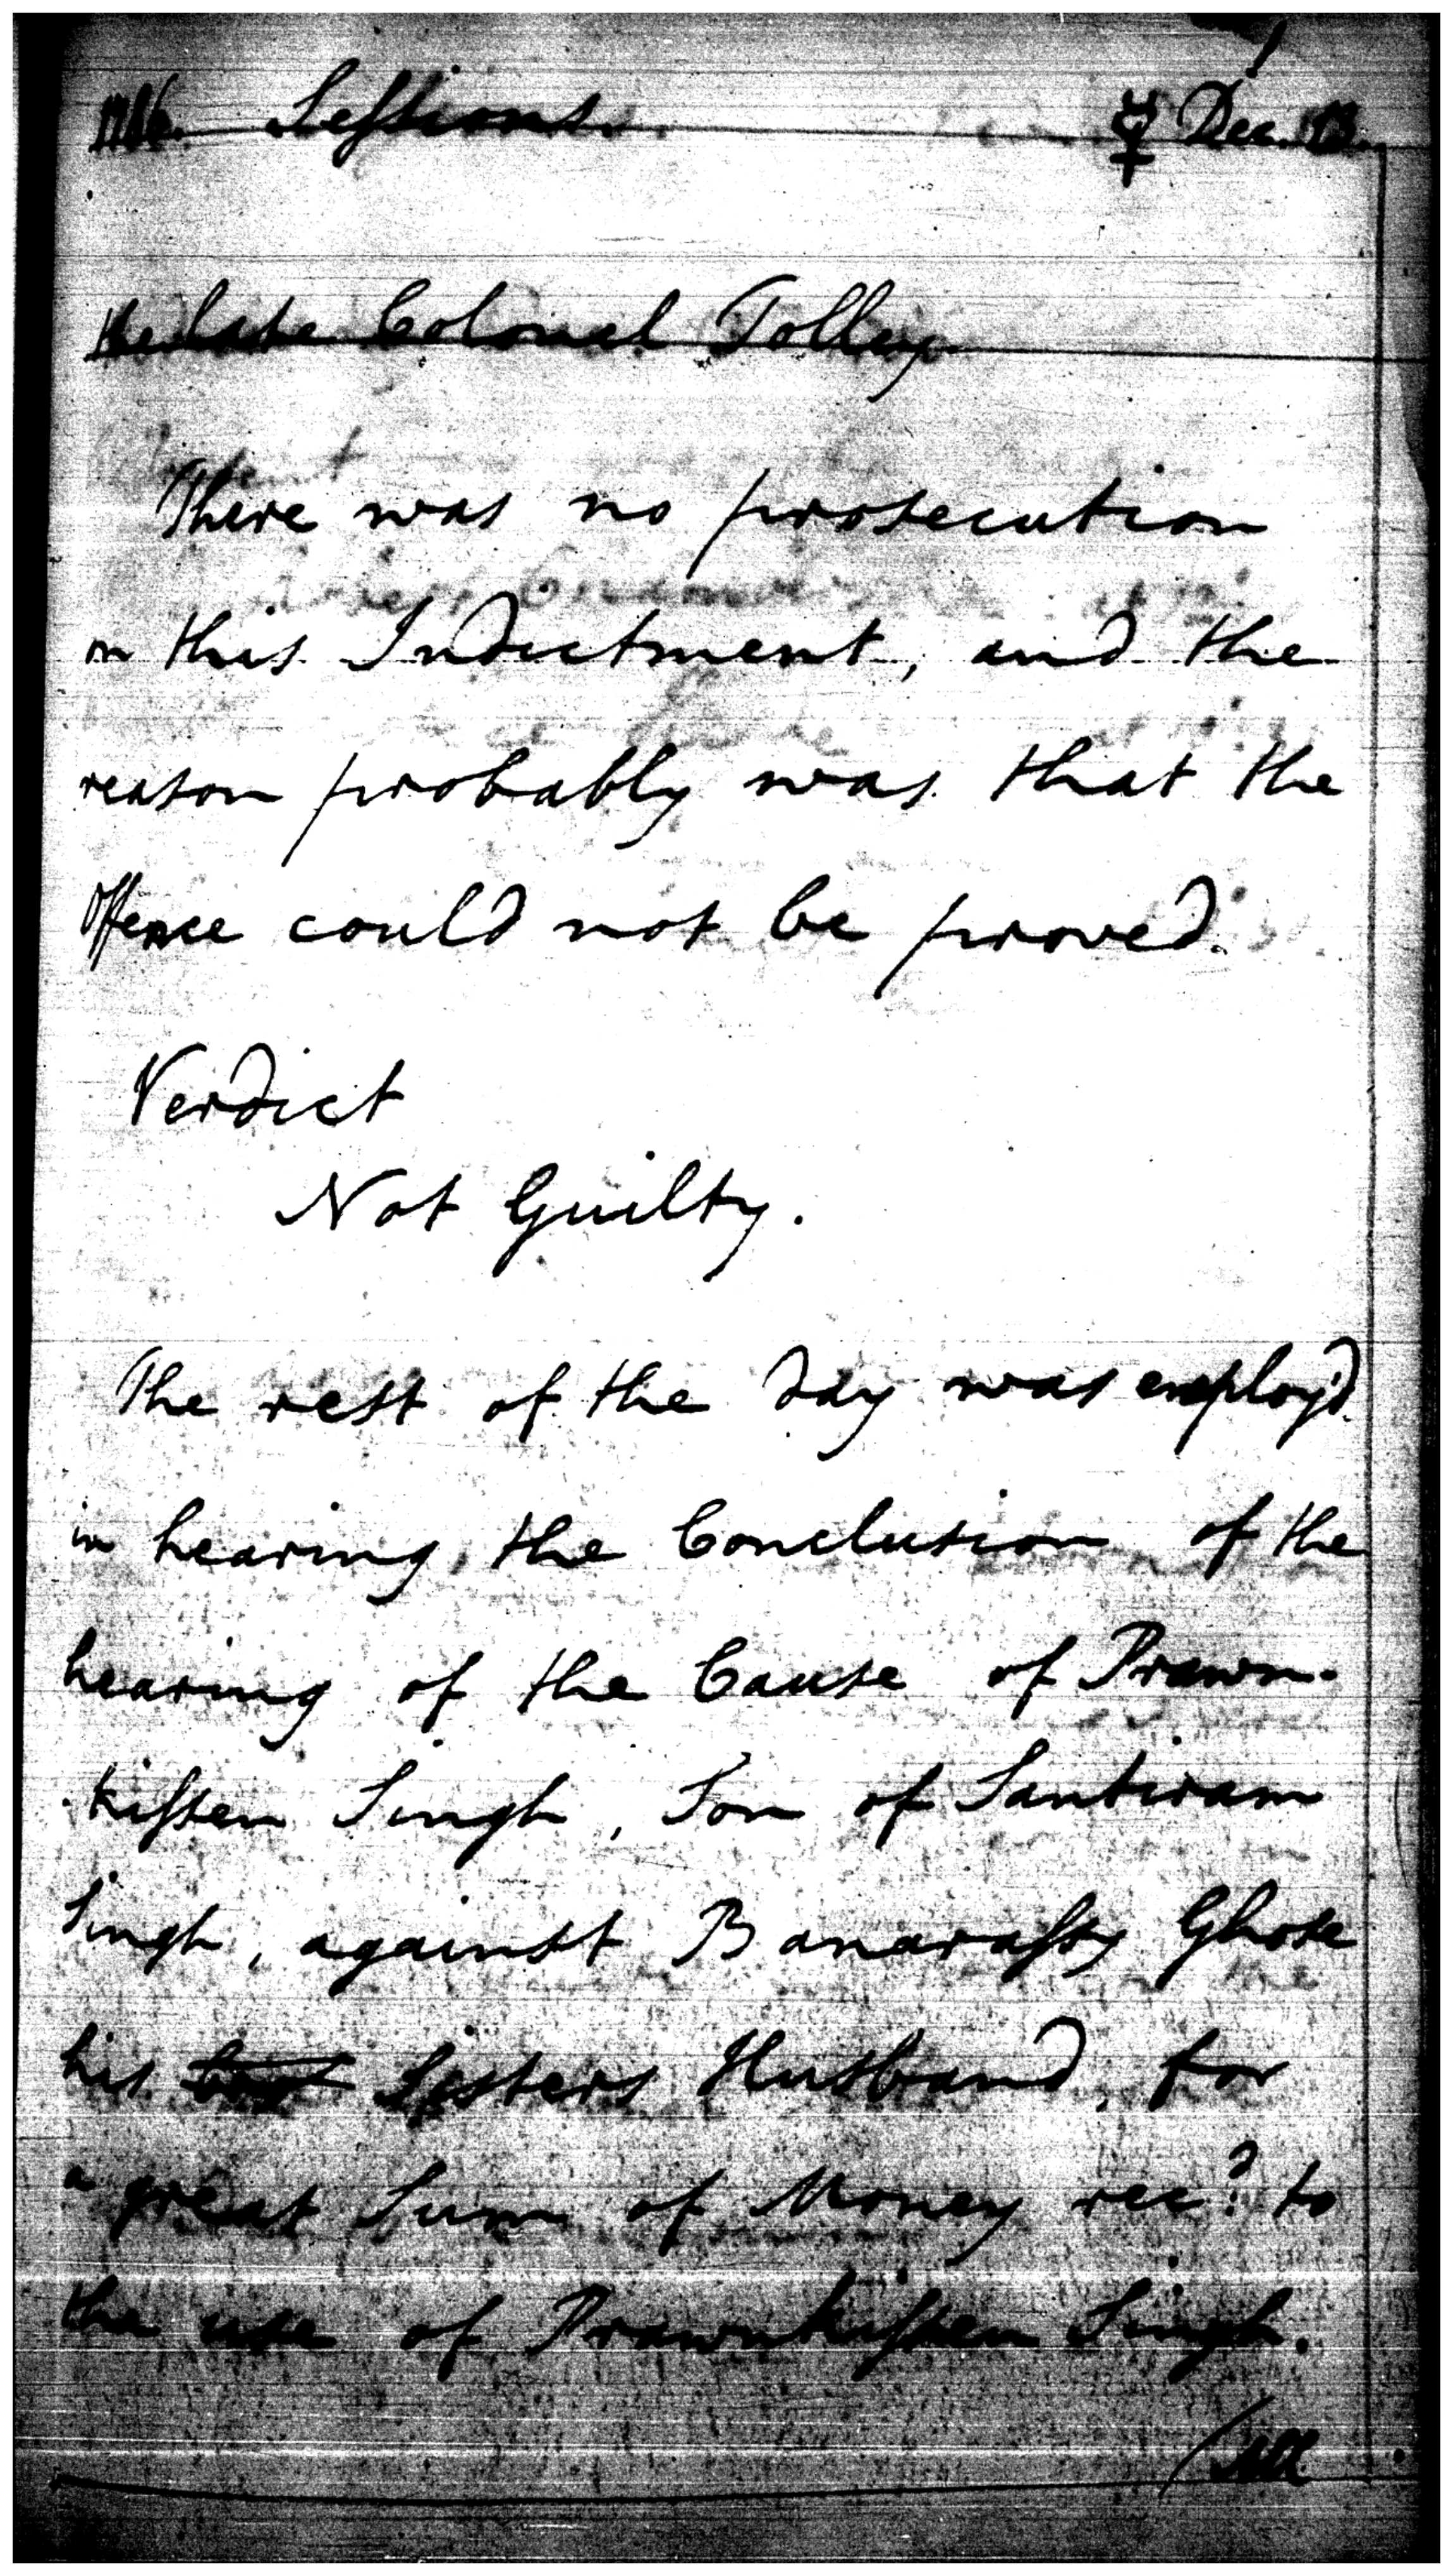 1786. Sessions. ☿ Dec. 13.
the late Colonel Tolley.
There was no prosecution
on this Indictment, and the
reason probably was that the
offence could not be proved.
Verdict
Not Guilty.
The rest of the day was employ'd
in hearing the Conclusion of the
hearing of the Cause of Prawn-
kissen Singh, Son of Santiram
Singh, against Banarassy Ghose
his Sisters Husband, for
a great Sum of Money rec.d to
the use of Prawnkissen Singh.